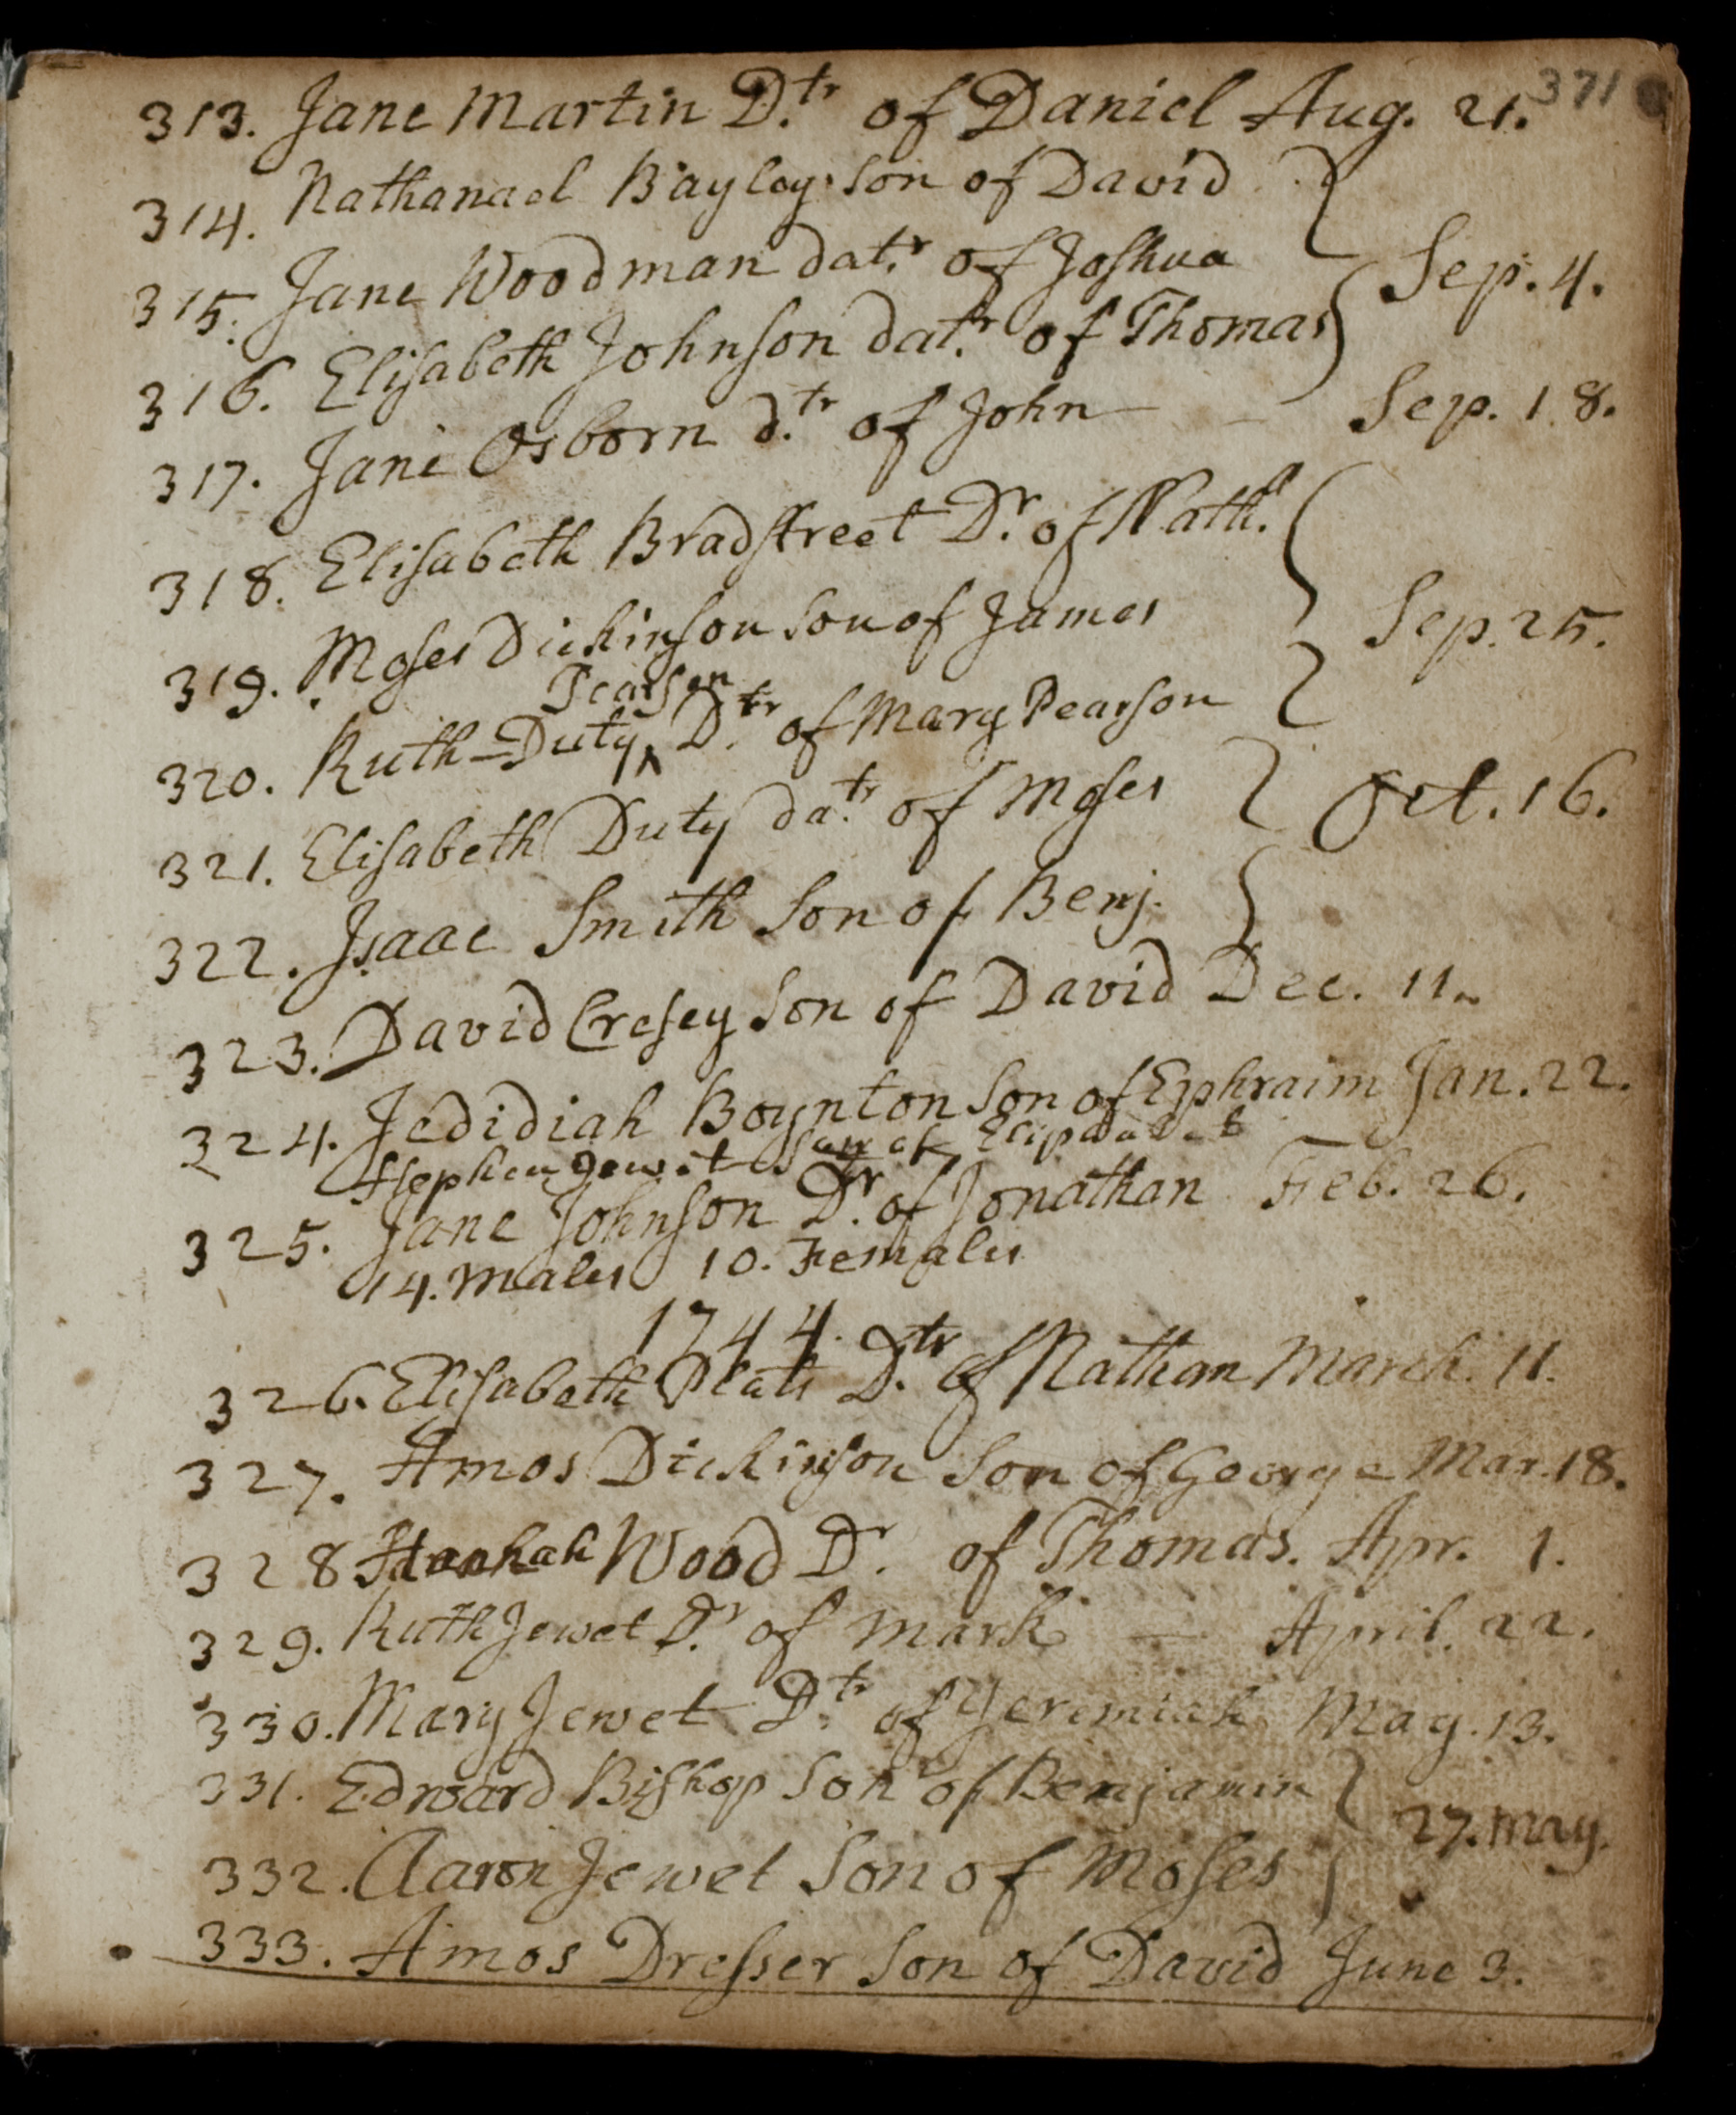 371
313. Jane Martin D.tr of Daniel Aug. 21.
314. Nathanael Bayley son of David
315. Jane Woodman dat.r of Joshua
Sep. 4.
316. Elisabeth Johnson dat.r of Thomas
317. Jane Osborn d.tr of John — Sep. 18.
318. Elisabeth Bradstreet D.r of Nath.ll
319. Moses Dickinson son of James
Sep. 25.
Pearson
320. Ruth Duty ‸ D.tr of Mary Pearson
321. Elisabeth Duty da.tr of Moses
Oct. 16.
322. Isaac Smith Son of Benj.
323. David Cresey Son of David Dec. 11.
324. Jedidiah Boynton Son of Ephraim Jan. 22.
Stephen Jewit Son of
325. Jane Johnson D.r of Jonathan Feb. 26.
14. Males 10. Females
1744.
326. Elisabeth Plats D.tr of Nathan March. 11.
327. Amos Dickinson Son of George Mar. 18.
328 Hannah Wood D.r of Thomas. Apr. 1.
329. Ruth Jewet D.r of Mark — April. 22.
330. Mary Jewet D.tr of Jeremiah May. 13.
331. Edward Bishop Son of Benjamin
27. May.
332. Aaron Jewet Son of Moses
333. Amos Dresser Son of David June 3.